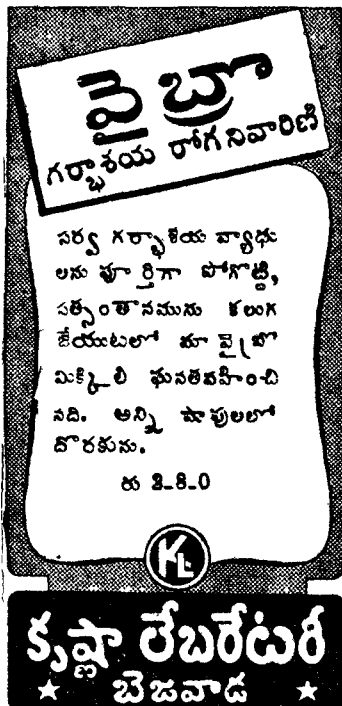 వైబ్రో
గర్భాశయ రోగనివారిణి
సర్వ గర్భాశయ వ్యాధు
లను పూర్తిగా పోగొట్టి,
సత్సంతానమును కలుగ
జేయుటలో మా వైబ్రో
మిక్కిలి ఘనతవహించి
నది. అన్ని షాపులలో
దొరకును.
రు 3-8-0
KL
కృష్ణా లేబరేటరీ
★ బెజవాడ ★